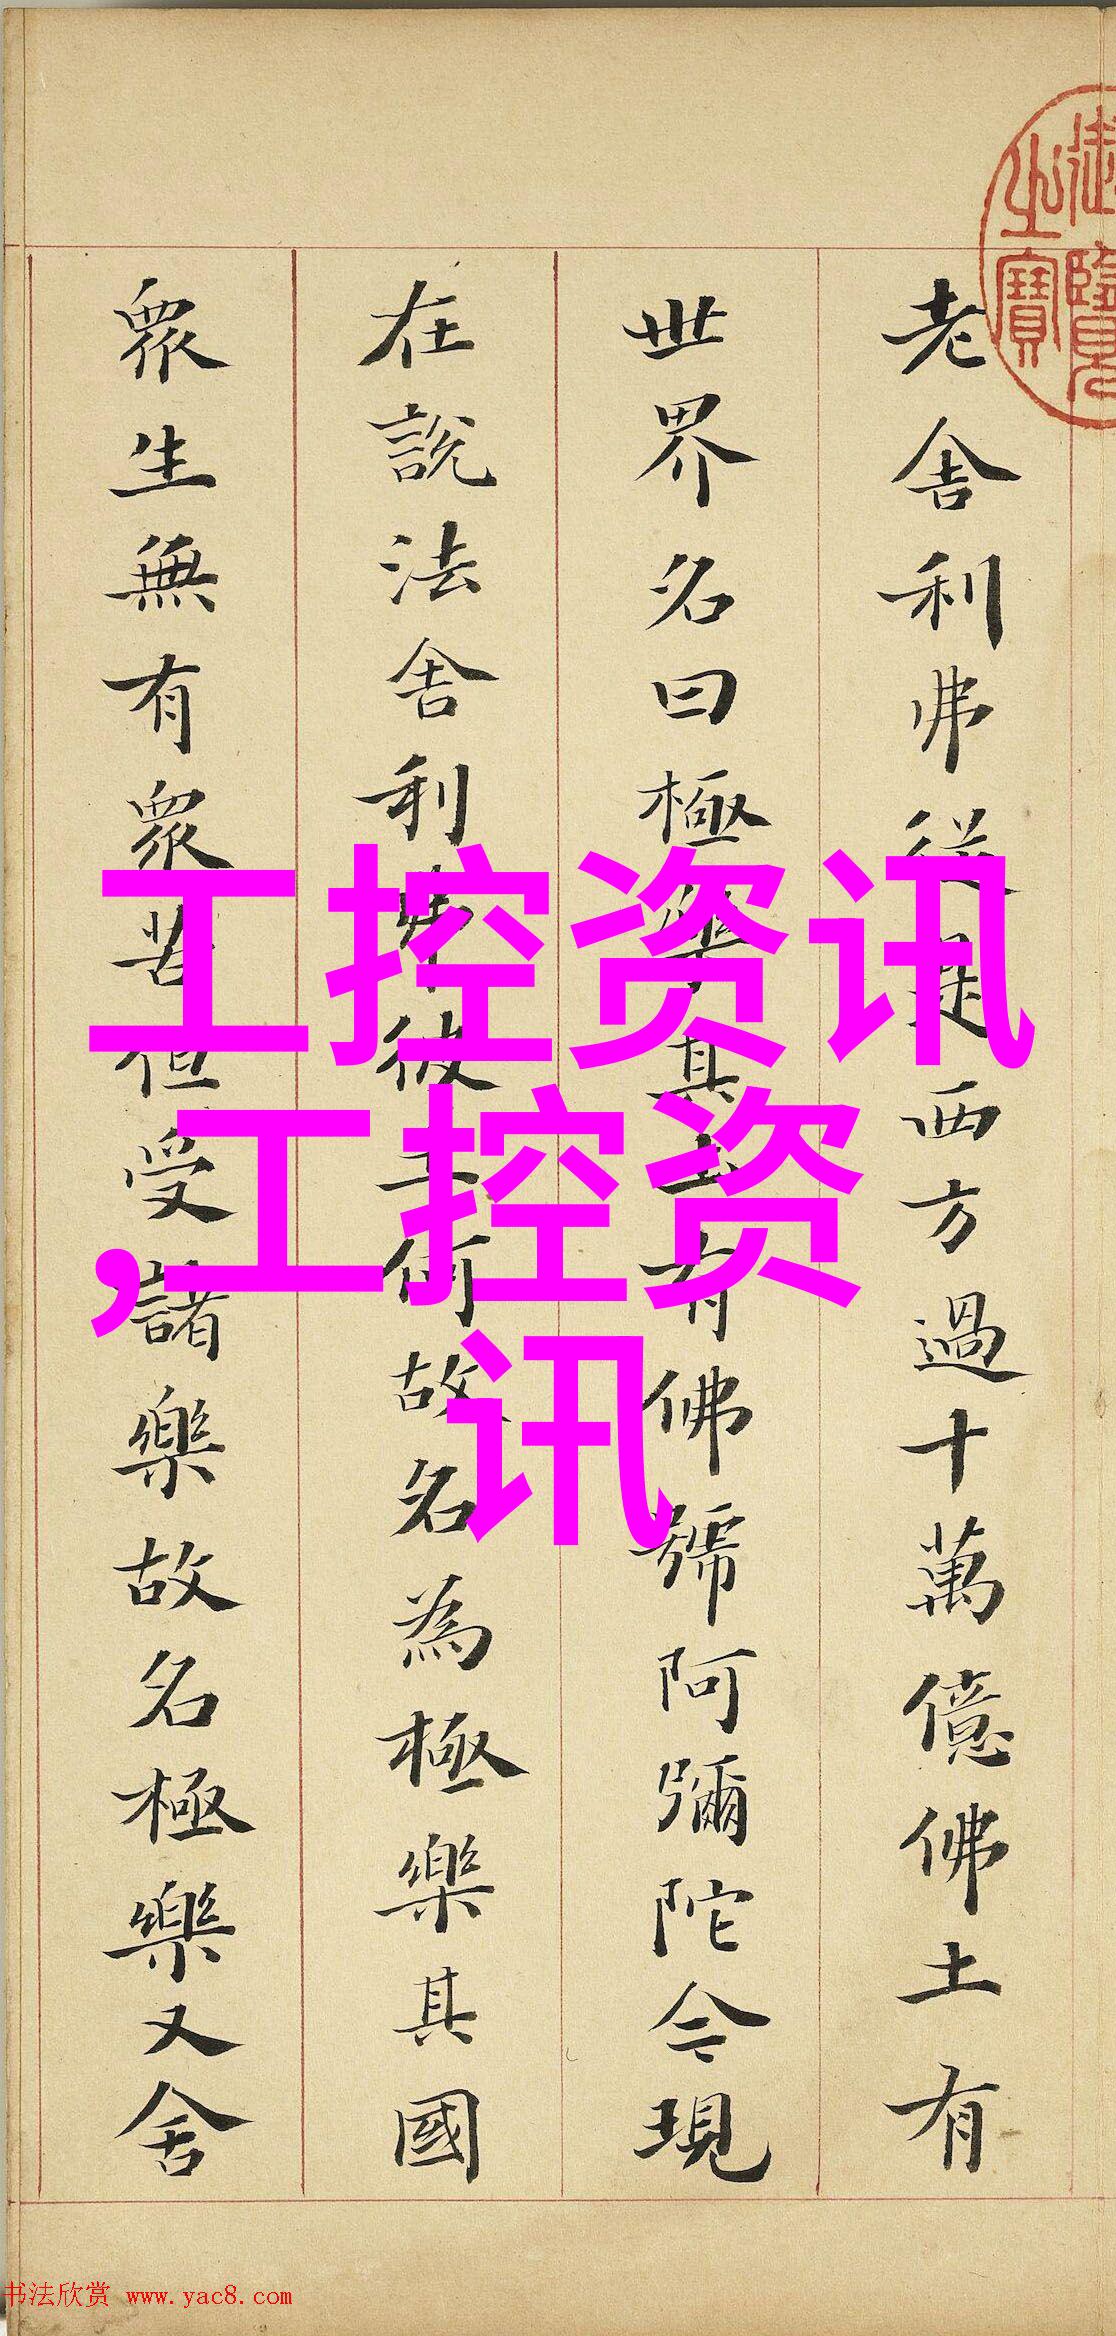 御覽
之寶
老舍利弗從是西方過十萬億佛土有
世界名曰極樂其土有佛號阿彌陀今現
在說法舍利弗彼土何故名為極樂其國
衆生無有衆苦但受諸樂故名極樂又舍
工控资讯
,工控资
讯
书法欣赏 www.yac8.com